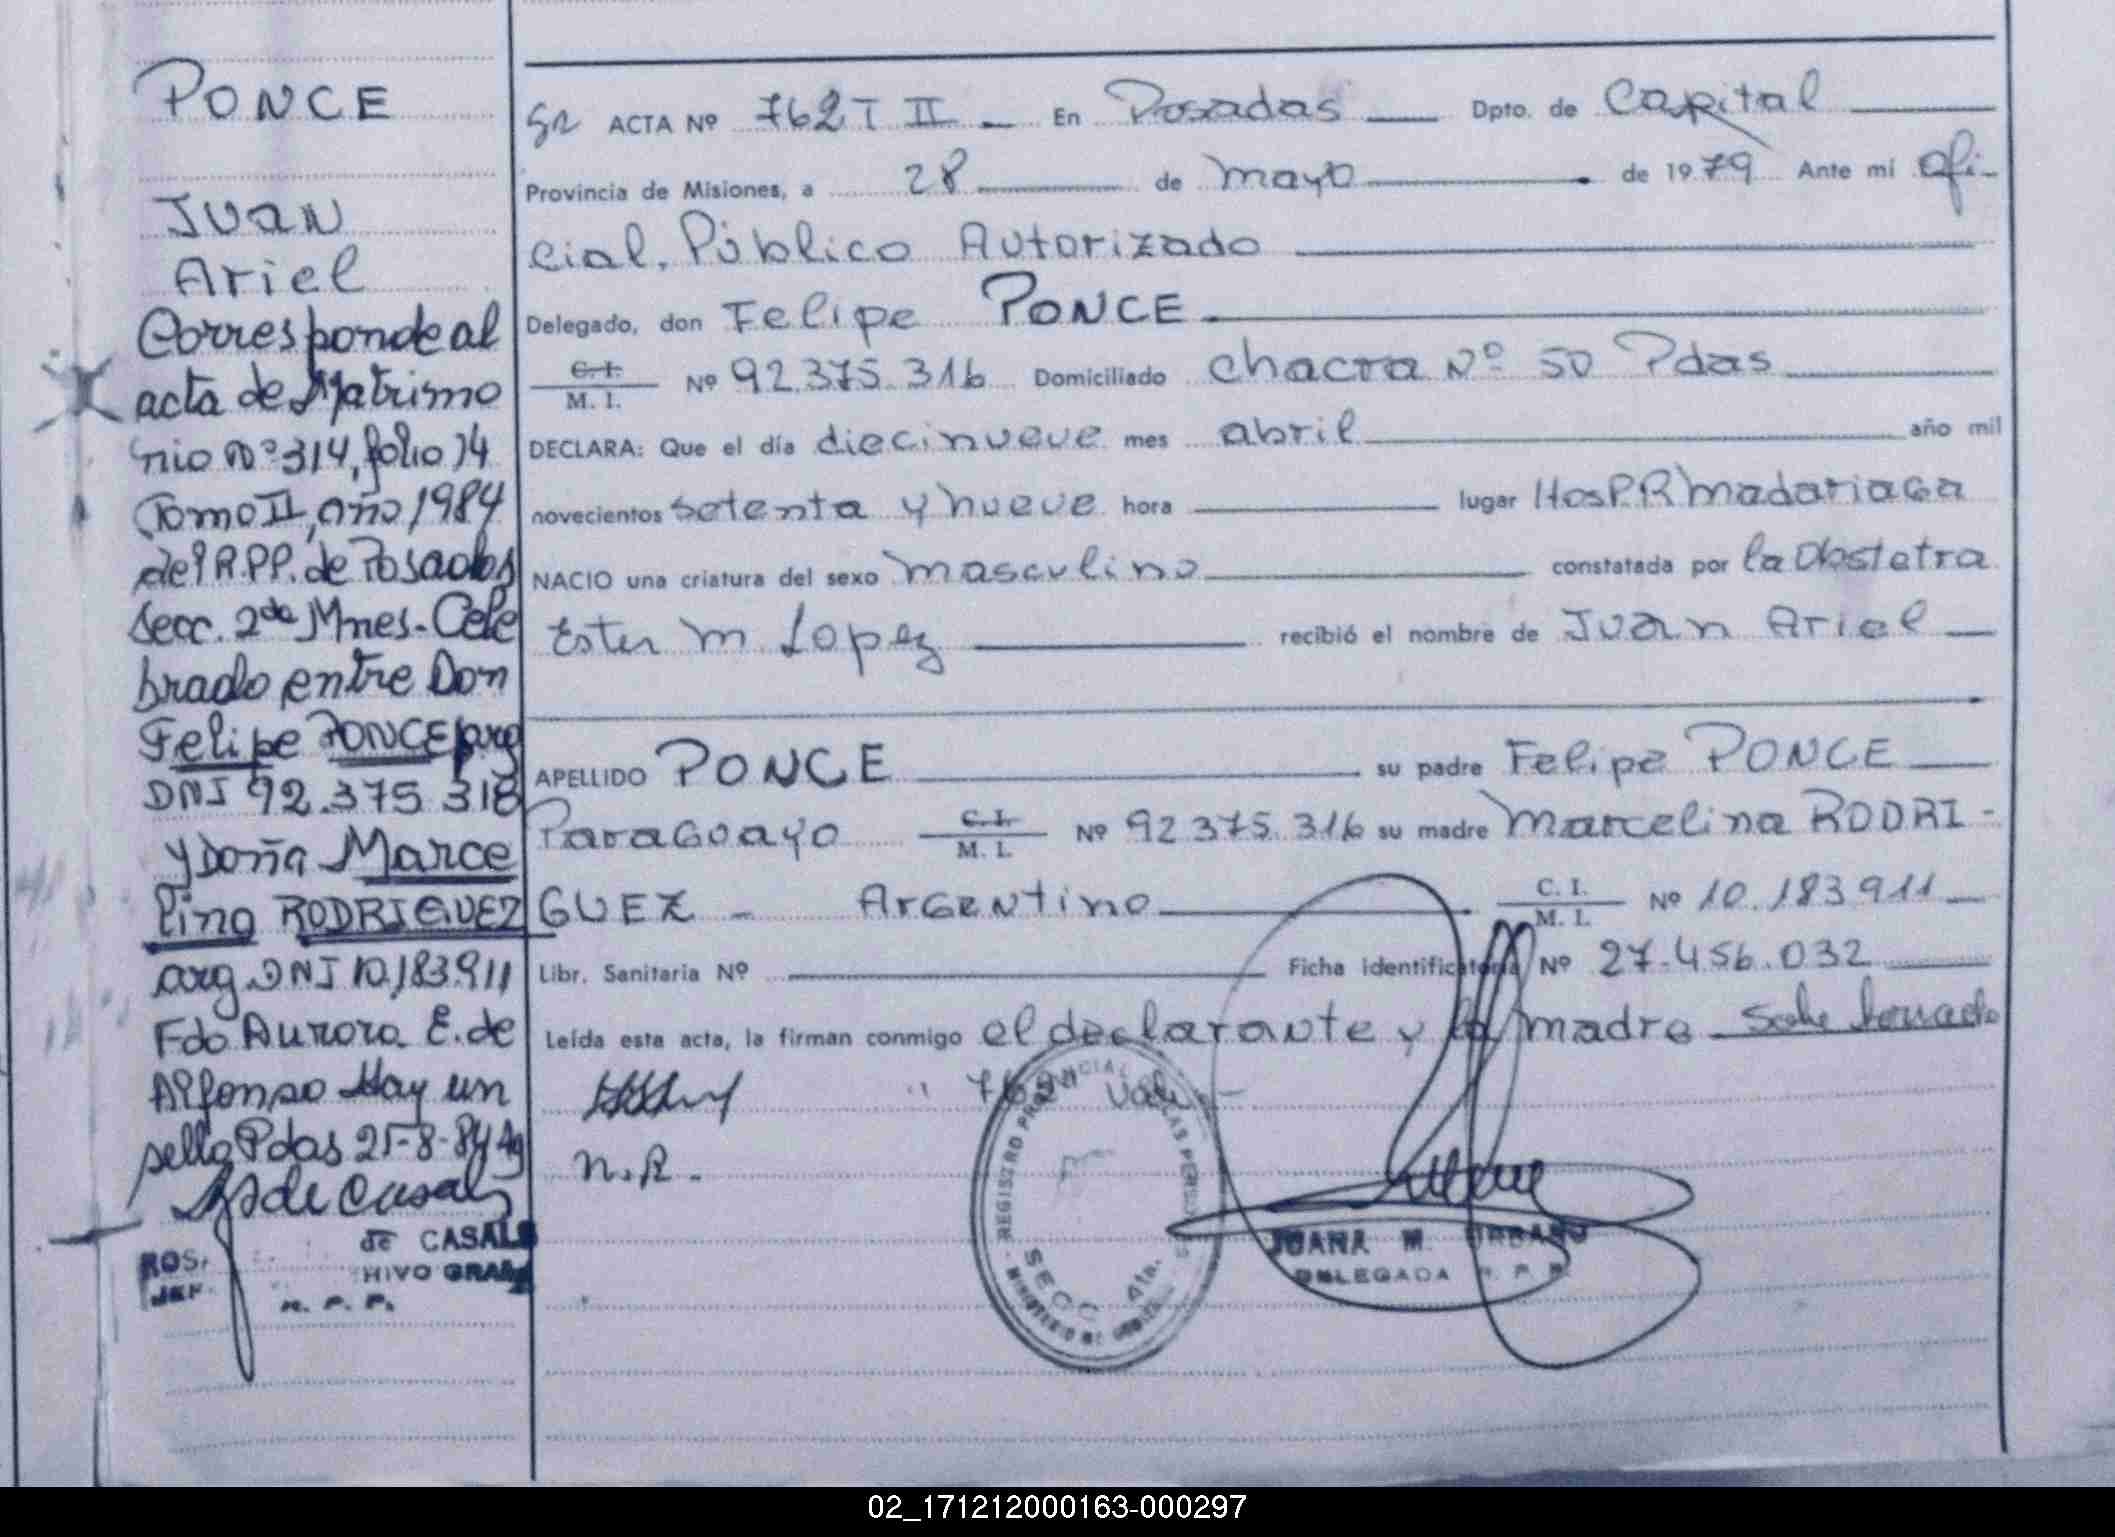 PONCE
Juan
Ariel
Corresponde al
acta de Matrimo
nio Nº 314, folio 14
Tomo II, año 1984
del R.P.P. de Posadas
Secc. 2da Mnes. Cele
brado entre Don
Felipe PONCE parg
DNI 92.375 318
y Doña Marce
lina RODRIGUEZ
arg. DNI 10.183.911
Fdo Aurora E. de
Alfonso Hay un
sello Pdas 25-8-84
de Casals
ROS. de CASALS
JEF. HIVO GRAL
R. P. P.
ACTA Nº 762 T II En Posadas Dpto. de Capital
Provincia de Misiones, a 28 de mayo de 1979 Ante mi Ofi-
cial. Público Autorizado
Delegado, don Felipe PONCE
C. I. / M. I. Nº 92.375.316 Domiciliado Chacra Nº 50 Pdas
DECLARA: Que el día diecinueve mes abril año mil
novecientos setenta y nueve hora lugar Hosp. R Madariaga
NACIO una criatura del sexo masculino constatada por la Obstetra
Ester M Lopez recibió el nombre de Juan Ariel
APELLIDO PONCE su padre Felipe PONCE
Paraguayo C. I. / M. I. Nº 92375.316 su madre Marcelina RODRI-
GUEZ - Argentino C. I. / M. I. Nº 10.183911
Libr. Sanitaria Nº Ficha identificatoria Nº 27.456.032
Leída esta acta, la firman conmigo el declarante y la madre
"762" Vale
N.R.
REGISTRO PROVINCIAL DE LAS PERSONAS
SECC 4ta.
JUANA M. URBANO
DELEGADA R. P. P.
02_171212000163-000297